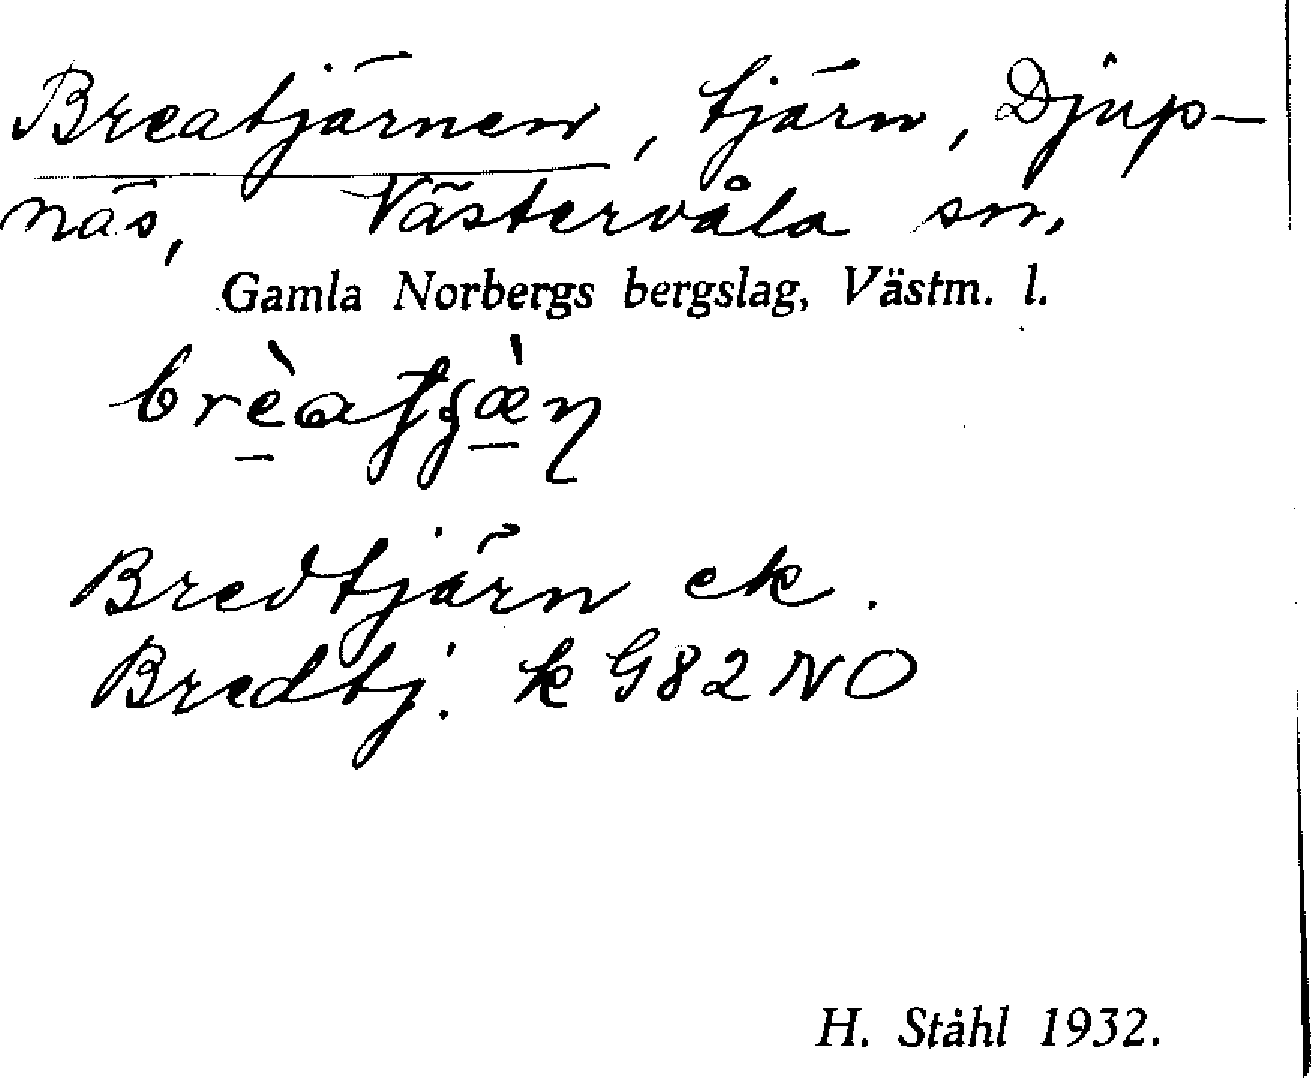 Breatjärnen, tjärn, Djup-
näs, Västervåla sn.
Gamla Norbergs bergslag, Västm. l.
Bredtjärn ek.
Bredtj. k G82NO
H. Ståhl 1932.